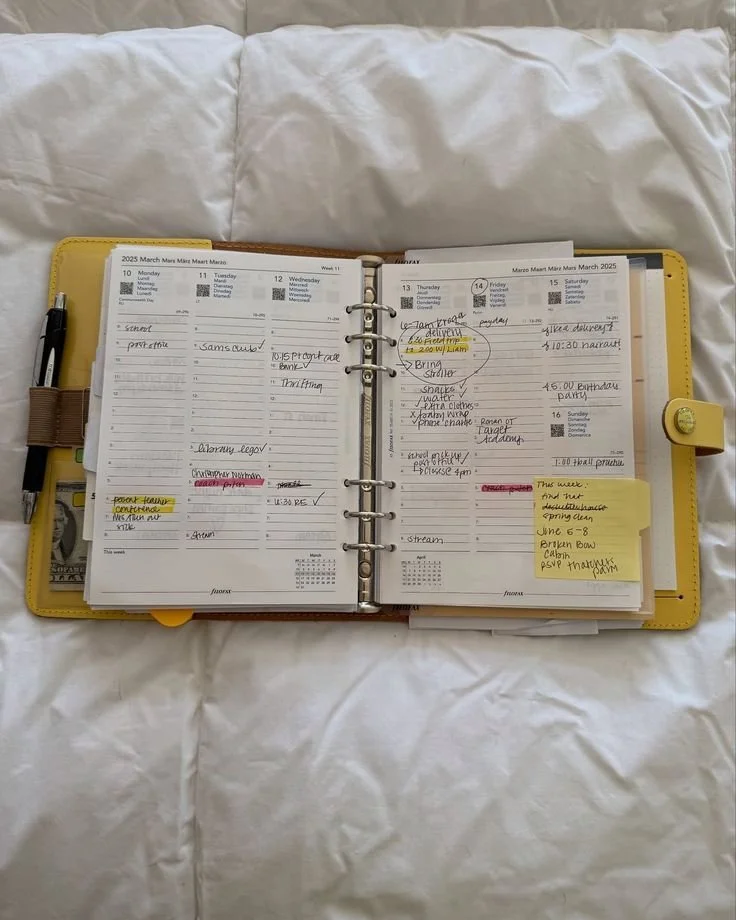 2025 March Mars März Maart Marzo
Week 11
10 Monday
Lundi
Montag
Maandag
Lunedì
Commonwealth Day
school
post office
parent teacher
conference
silk
This week
11 Tuesday
Mardi
Dienstag
Dinsdag
Martedì
Sams club ✓
library lego ✓
Christopher Norman
coach
Stream
12 Wednesday
Mercredi
Mittwoch
Woensdag
Mercoledì
10:15
Bank ✓
Thrifting
6:30 RE ✓
March
filofax
Marzo Maart März Mars March 2025
13 Thursday
Jeudi
Donnerstag
Donderdag
Giovedì
6-7am Kroger
delivery
8:30 Field trip
to 2:00 w/ Liam
→ Bring
stroller
snacks
✓ water
✓ extra clothes
X baby wrap
✓ phone charge
school pick up
post office ✓
closes @ 4pm
Stream
April
14 Friday
Vendredi
Freitag
Vrijdag
Venerdì
payday
Ronan OT
Target
academy
15 Saturday
Samedi
Samstag
Zaterdag
Sabato
Ikea delivery
10:30 haircut
5:00 Birthday
party
16 Sunday
Dimanche
Sonntag
Zondag
Domenica
1:00 tball practice
This week:
And that
Spring clean
June 5-8
Broken Bow
Cabin
RSVP Thatcher
party
filofax